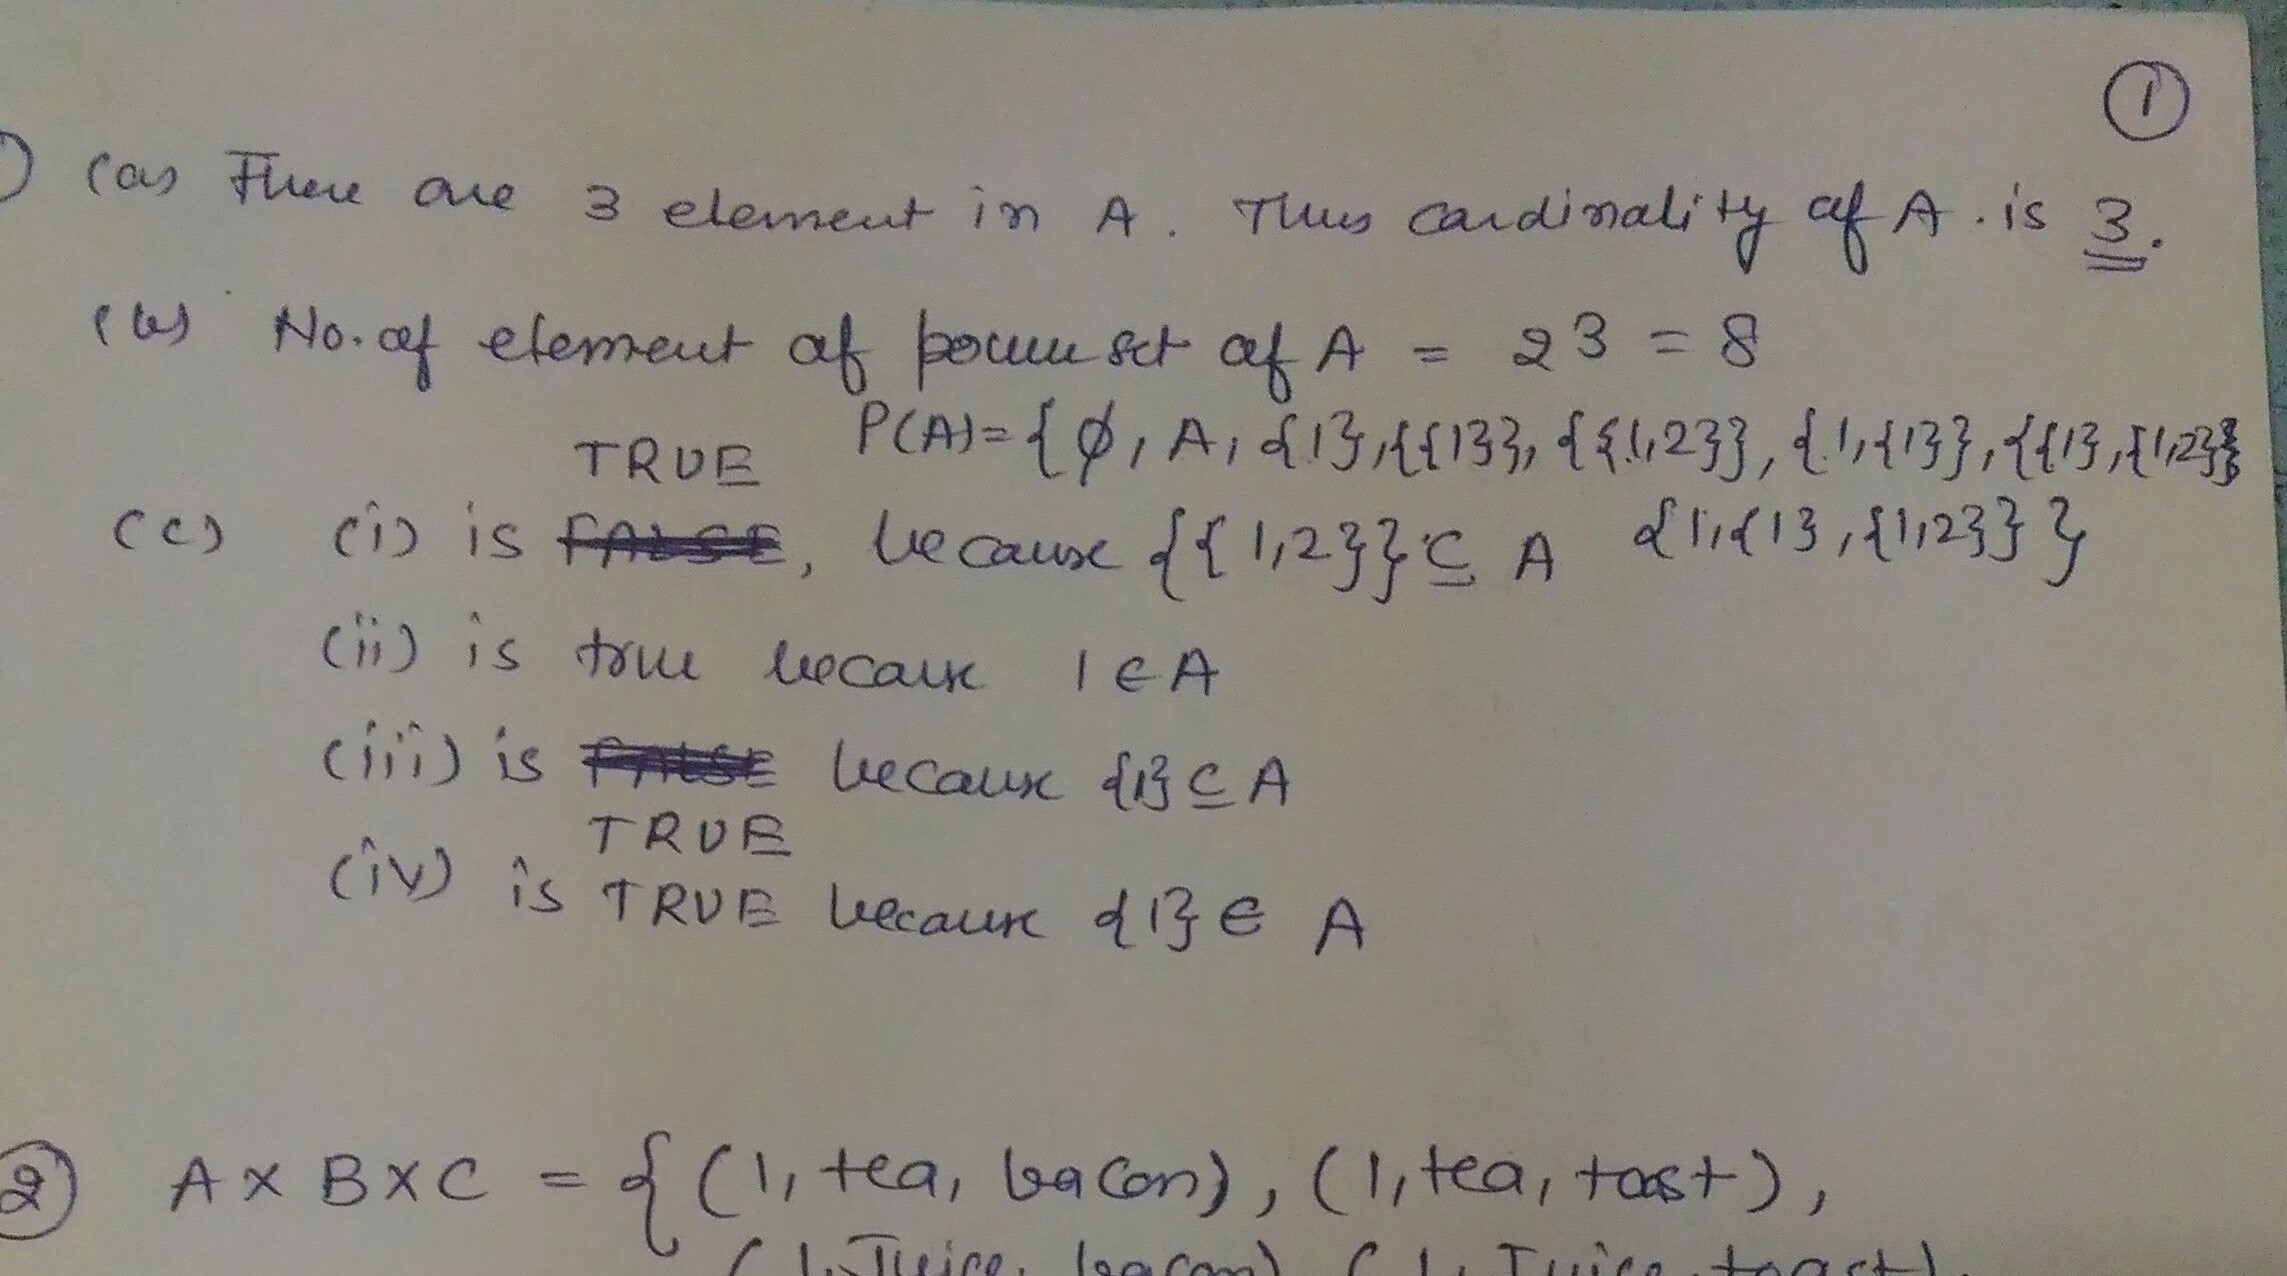 ①
(a) There are 3 element in A. Thus cardinality of A is 3.
(b) No. of element of power set of A = 23 = 8
P(A)={ϕ, A, {1},{{1}}, {{1,2}}, {1,{1}},{{1},{1,2}}
TRUE {1,{1},{1,2}}}
(c) (i) is FALSE, because {{1,2}}⊆ A
(ii) is true because 1∈A
(iii) is FALSE because {1}⊆A
TRUE
(iv) is TRUE because {1}∈ A
② A×B×C = {(1, tea, bacon), (1, tea, toast),
(1, Juice, bacon) (1, Juice, toast),